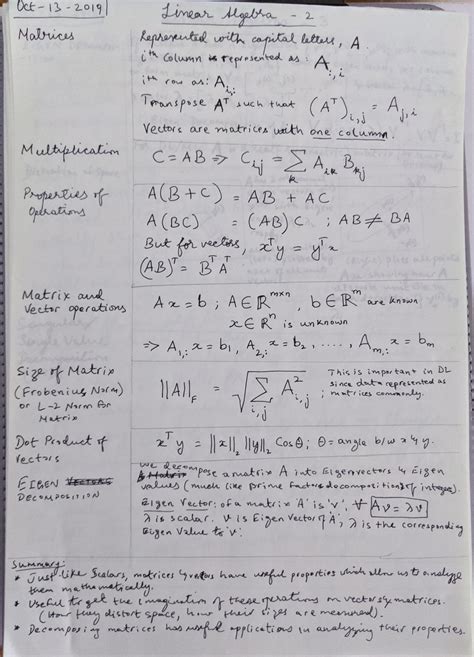 Oct-13-2019
Linear Algebra - 2
Matrices
Represented with capital letters, A.
ith column is represented as: A:,i
ith row as: Ai,:
Transpose Aᵀ such that (Aᵀ)i,j = Aj,i
Vectors are matrices with one column.
Multiplication
C = AB => Cij = Σk Aik Bkj
Properties of
Operations
A(B+C) = AB + AC
A(BC) = (AB)C ; AB ≠ BA
But for vectors, xᵀy = yᵀx
(AB)ᵀ = BᵀAᵀ
Matrix and
Vector operations
Ax = b ; A∈ℝᵐˣⁿ, b∈ℝᵐ are known
x∈ℝⁿ is unknown
=> A1,: x = b1, A2,: x = b2, ....., Am,: x = bm
Size of Matrix
(Frobenius Norm)
or L-2 Norm for
Matrix
||A||F = √Σi,j A²i,j
This is important in DL
; since data represented as
matrices commonly.
Dot Product of
Vectors
xᵀy = ||x||2 ||y||2 Cosθ; θ = angle b/w x & y.
EIGEN VECTORS
DECOMPOSITION
We decompose a matrix A into Eigenvectors & Eigen
values (much like prime factors decomposition of integer).
Eigen Vector: of a matrix 'A' is 'v', Av = λv
λ is scalar. v is Eigen Vector of 'A', λ is the corresponding
Eigen Value to 'v'.
Summary:
* Just like Scalars, matrices & vectors have useful properties which allow us to analyze
them mathematically.
* Useful to get the imagination of these operations on vectors & matrices.
(How they distort space, how their sizes are measured).
* Decomposing matrices has useful applications in analyzing their properties.